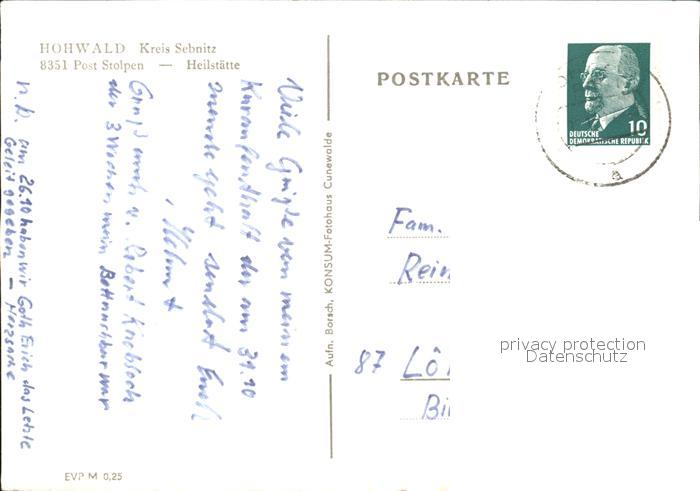 HOHWALD Kreis Sebnitz
8351 Post Stolpen — Heilstätte
POSTKARTE
10
DEUTSCHE
DEMOKRATISCHE REPUBLIK
a
Viele Grüße von meinem
Kuraufenthalt der am 31.10
zuende geht sendet Euch
Helmut
Gruß auch v. Robert Kirchbach
der 3 Wochen mein Bettnachbar war
N.B. am 26.10 haben wir Goth. Erich das Letzte
Geleit gegeben — Herzsache
Aufn. Borsch, KONSUM-Fotohaus Cunewalde
Fam.
Rein
87 Lö
Bi
privacy protection
Datenschutz
EVP M 0,25